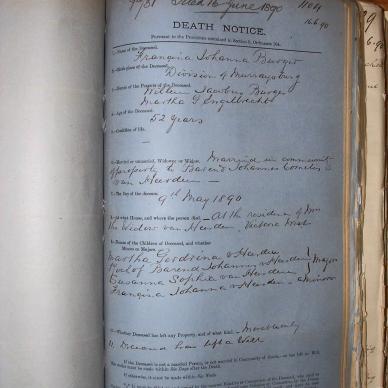 Filed 16 June 1890
DEATH NOTICE.
Pursuant to the Provisions contained in Section 9, Ordinance 104.
1.—Name of the Deceased.
Francina Johanna Burger
2.—Birthplace of the Deceased.
Division of Murraysburg
3.—Names of the Parents of the Deceased.
Willem Jacobus Burger
Martha G Engelbrecht
4.—Age of the Deceased.
52 years
5.—Condition of life.
—
6.—Married or unmarried, Widower or Widow. Married in community
of property to Barend Johannes Cornelis
van Heerden —
7.—The Day of the decease. 9th May 1890
8.—At what House, and where the person died.— At the residence of Mrs
the Widow van Heerden, Victoria West
9.—Names of the Children of Deceased, and whether
Minors or Majors.
Martha Gerdvina v Heerden
Barend Johannes v Heerden Major
Susanna Sophia van Heerden
Francina Johanna v Heerden - a Minor
10.—Whether Deceased has left any Property, and of what kind.— Moveable only
11. Deceased has left a Will